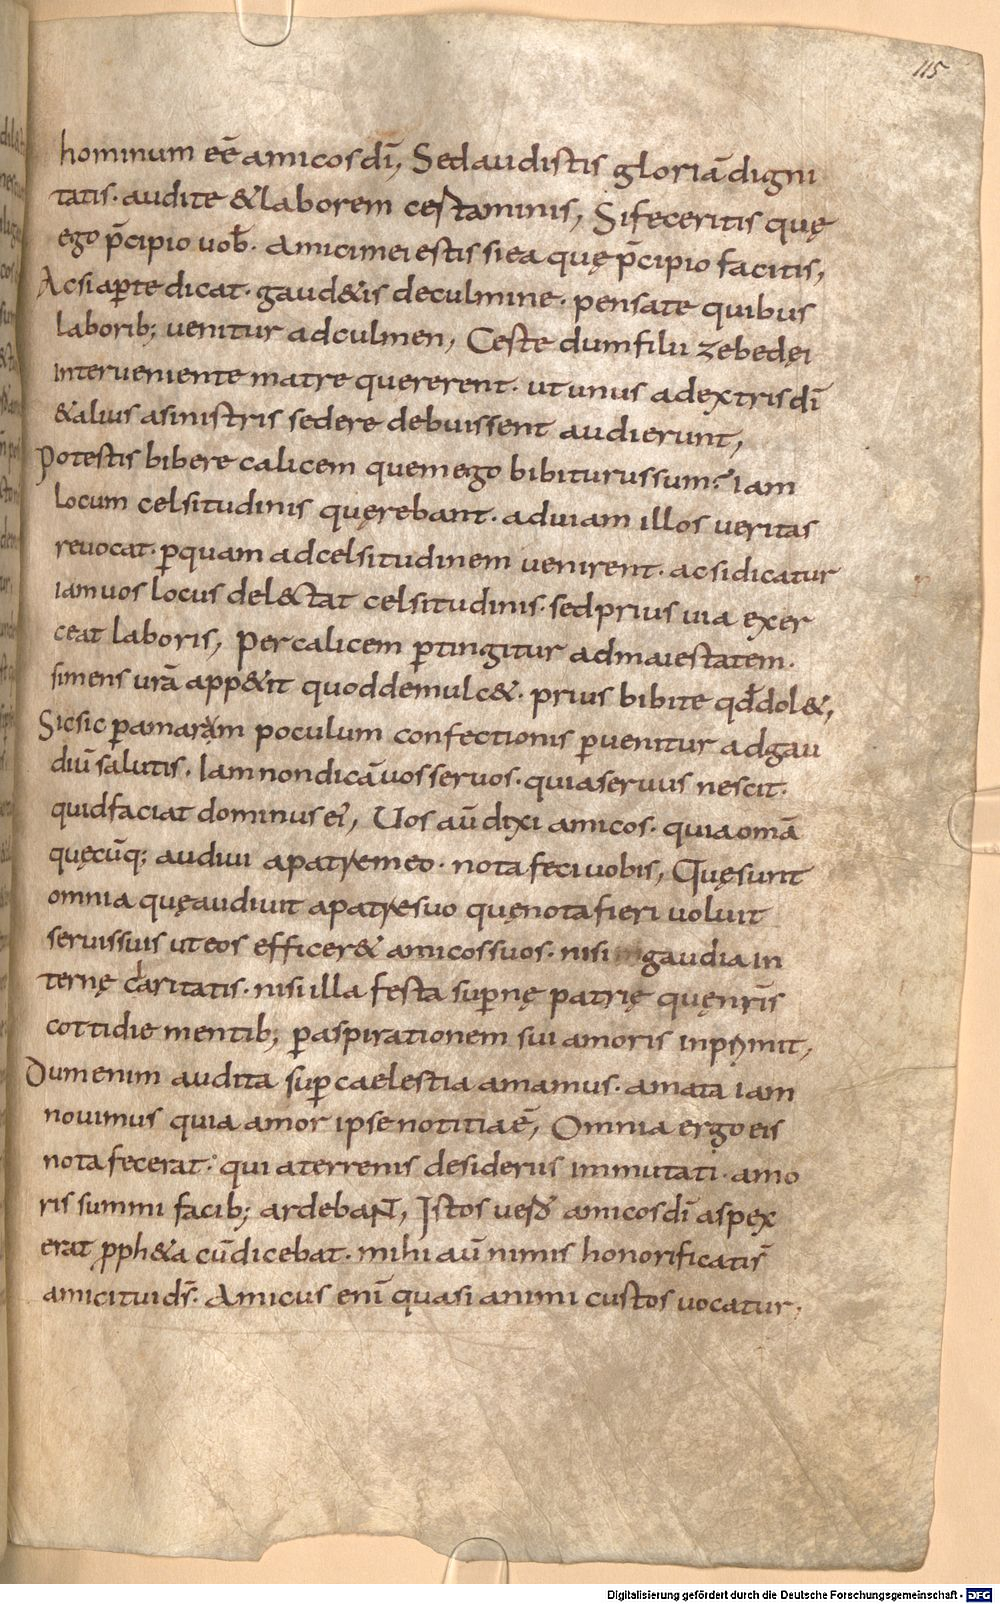 115
hominum eē amicos dī, Sed audistis gloriā digni
tatis. audite & laborem certaminis, Si feceritis quę
ego p̄cipio uob̄. Amici mei estis si ea quę p̄cipio facitis,
Ac si ꝑte dicat. gaud&is de culmine. pensate quibus
laborib; uenitur ad culmen, Certe dum filii zebedęi
interueniente matre quererent. ut unus a dextris dī
& alius a sinistris sedere debuissent audierunt,
Potestis bibere calicem quem ego bibiturus sum? iam
locum celsitudinis quęrebant. ad uiam illos ueritas
reuocat. ꝑ quam ad celsitudinem uenirent. ac si dicatur
iam uos locus del&tat celsitudinis. sed prius uia exer
ceat laboris, Per calicem ꝑtingitur ad maiestatem.
si mens ur̄a app&it quod demulc&. prius bibite qd̄ dol&,
Sic sic ꝑ amarum poculum confectionis ꝑuenitur ad gau
diū salutis. Iam non dicā uos seruos. quia seruus nescit.
quid faciat dominus eī, Uos aū dixi amicos. quia om̄a
quęcūq; audiui a patre meo. nota feci uobis, Quę sunt
omnia quę audiuit a patre suo quę nota fieri uoluit
seruis suis ut eos efficer& amicos suos. nisi gaudia in
ternę caritatis. nisi illa festa suꝑnę patrię quę nr̄is
cottidie mentib; ꝑ aspirationem sui amoris inp̄mit,
Dum enim audita suꝑcaelestia amamus. amata iam
nouimus quia amor ipse notitia ē, Omnia ergo eis
nota fecerat. qui a terrenis desideriis immutati. amo
ris summi facib; ardebant, Istos uero amicos dī aspex
erat ꝓph&a cū dicebat. mihi aū nimis honorificati s̄
amici tui ds̄. Amicus enī quasi animi custos uocatur;
Digitalisierung gefördert durch die Deutsche Forschungsgemeinschaft - DFG